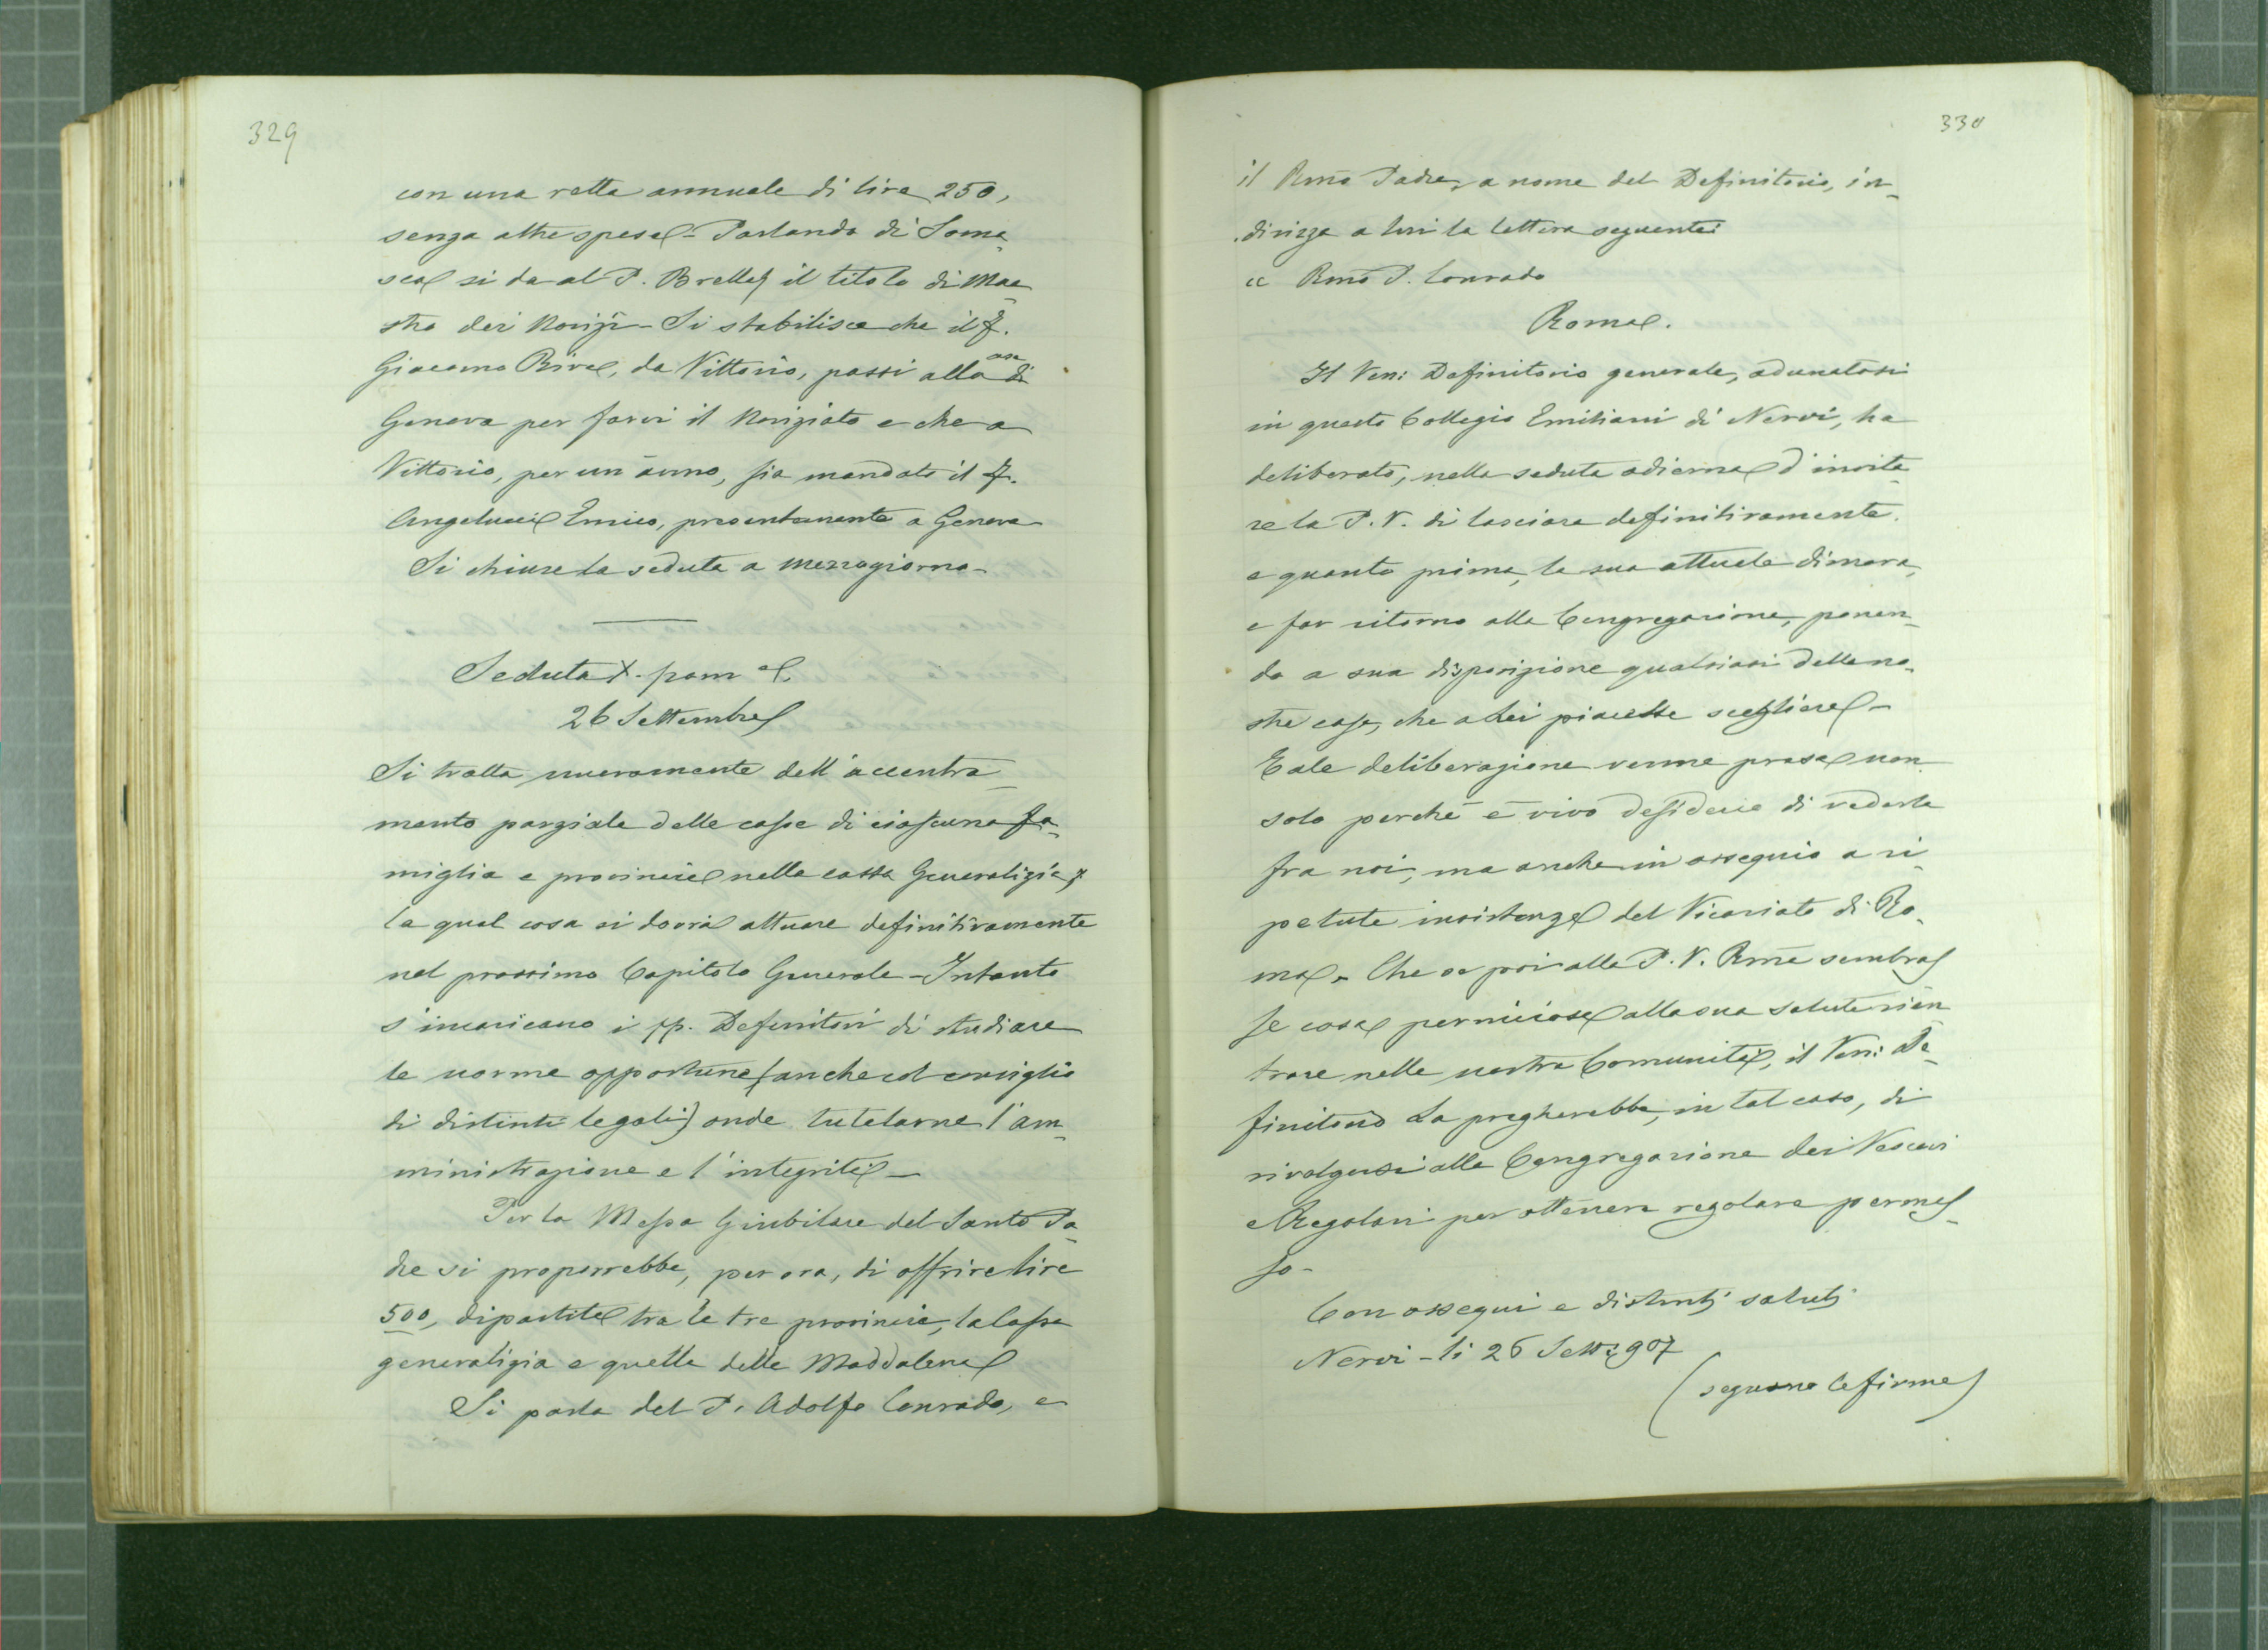 329
con una retta annuale di lire 250,
senza altre spese - Parlando di Soma-
sca si da al P. Brelles il titolo di Mae-
stro dei Novizi - Si stabilisce che il f.
Giacomo Riva, da Vittorio, passi alla casa di
Genova per farvi il Noviziato e che a
Vittorio, per un anno, sia mandato il f.
Angelucci Enrico, presentemente a Genova
Si chiuse la seduta a mezzogiorno -
Seduta X. pom e.
26 Settembre
Si tratta nuovamente dell'accentra-
mento parziale delle casse di ciascuna fa-
miglia e provincia nella cassa Generalizia;
la qual cosa si dovrà attuare definitivamente
nel prossimo Capitolo Generale - Intanto
s'incaricano i pp. Definitori di studiare
le norme opportune (anche col consiglio
di distinti legali) onde tutelarne l'am-
ministrazione e l'integrità -
Per la Messa Giubilare del Santo Pa-
dre si proporrebbe, per ora, di offrire lire
500, dipartite tra le tre provincie, la Cassa
generalizia e quella della Maddalena
Si parla del P. Adolfo Conrado, e
330
il Rmo Padre, a nome del Definitorio, in-
dirizza a lui la lettera seguente:
" Rmo P. Conrado
Roma.
Il Ven: Definitorio generale, adunatosi
in questo Collegio Emiliani di Nervi, ha
deliberato, nella seduta odierna d'invita-
re la P. V. di lasciare definitivamente,
e quanto prima, la sua attuale dimora,
e far ritorno alla Congregazione, ponen-
do a sua disposizione qualsiasi delle no-
stre case, che a Lei piacesse scegliere -
Tale deliberazione venne presa non
solo perchè è vivo desiderio di vederla
fra noi, ma anche in ossequio a ri-
petute insistenze del Vicariato di Ro-
ma. Che se poi alla P. V. Rma sembras-
se cosa perniciosa alla sua salute rien-
trare nelle nostra Comunità, il Ven: De-
finitorio La pregherebbe, in tal caso, di
rivolgersi alla Congregazione dei Vescovi
e Regolari per ottenere regolare permes-
so -
Con ossequi e distinti saluti
Nervi - li 26 Sett: 907
(seguono le firme)